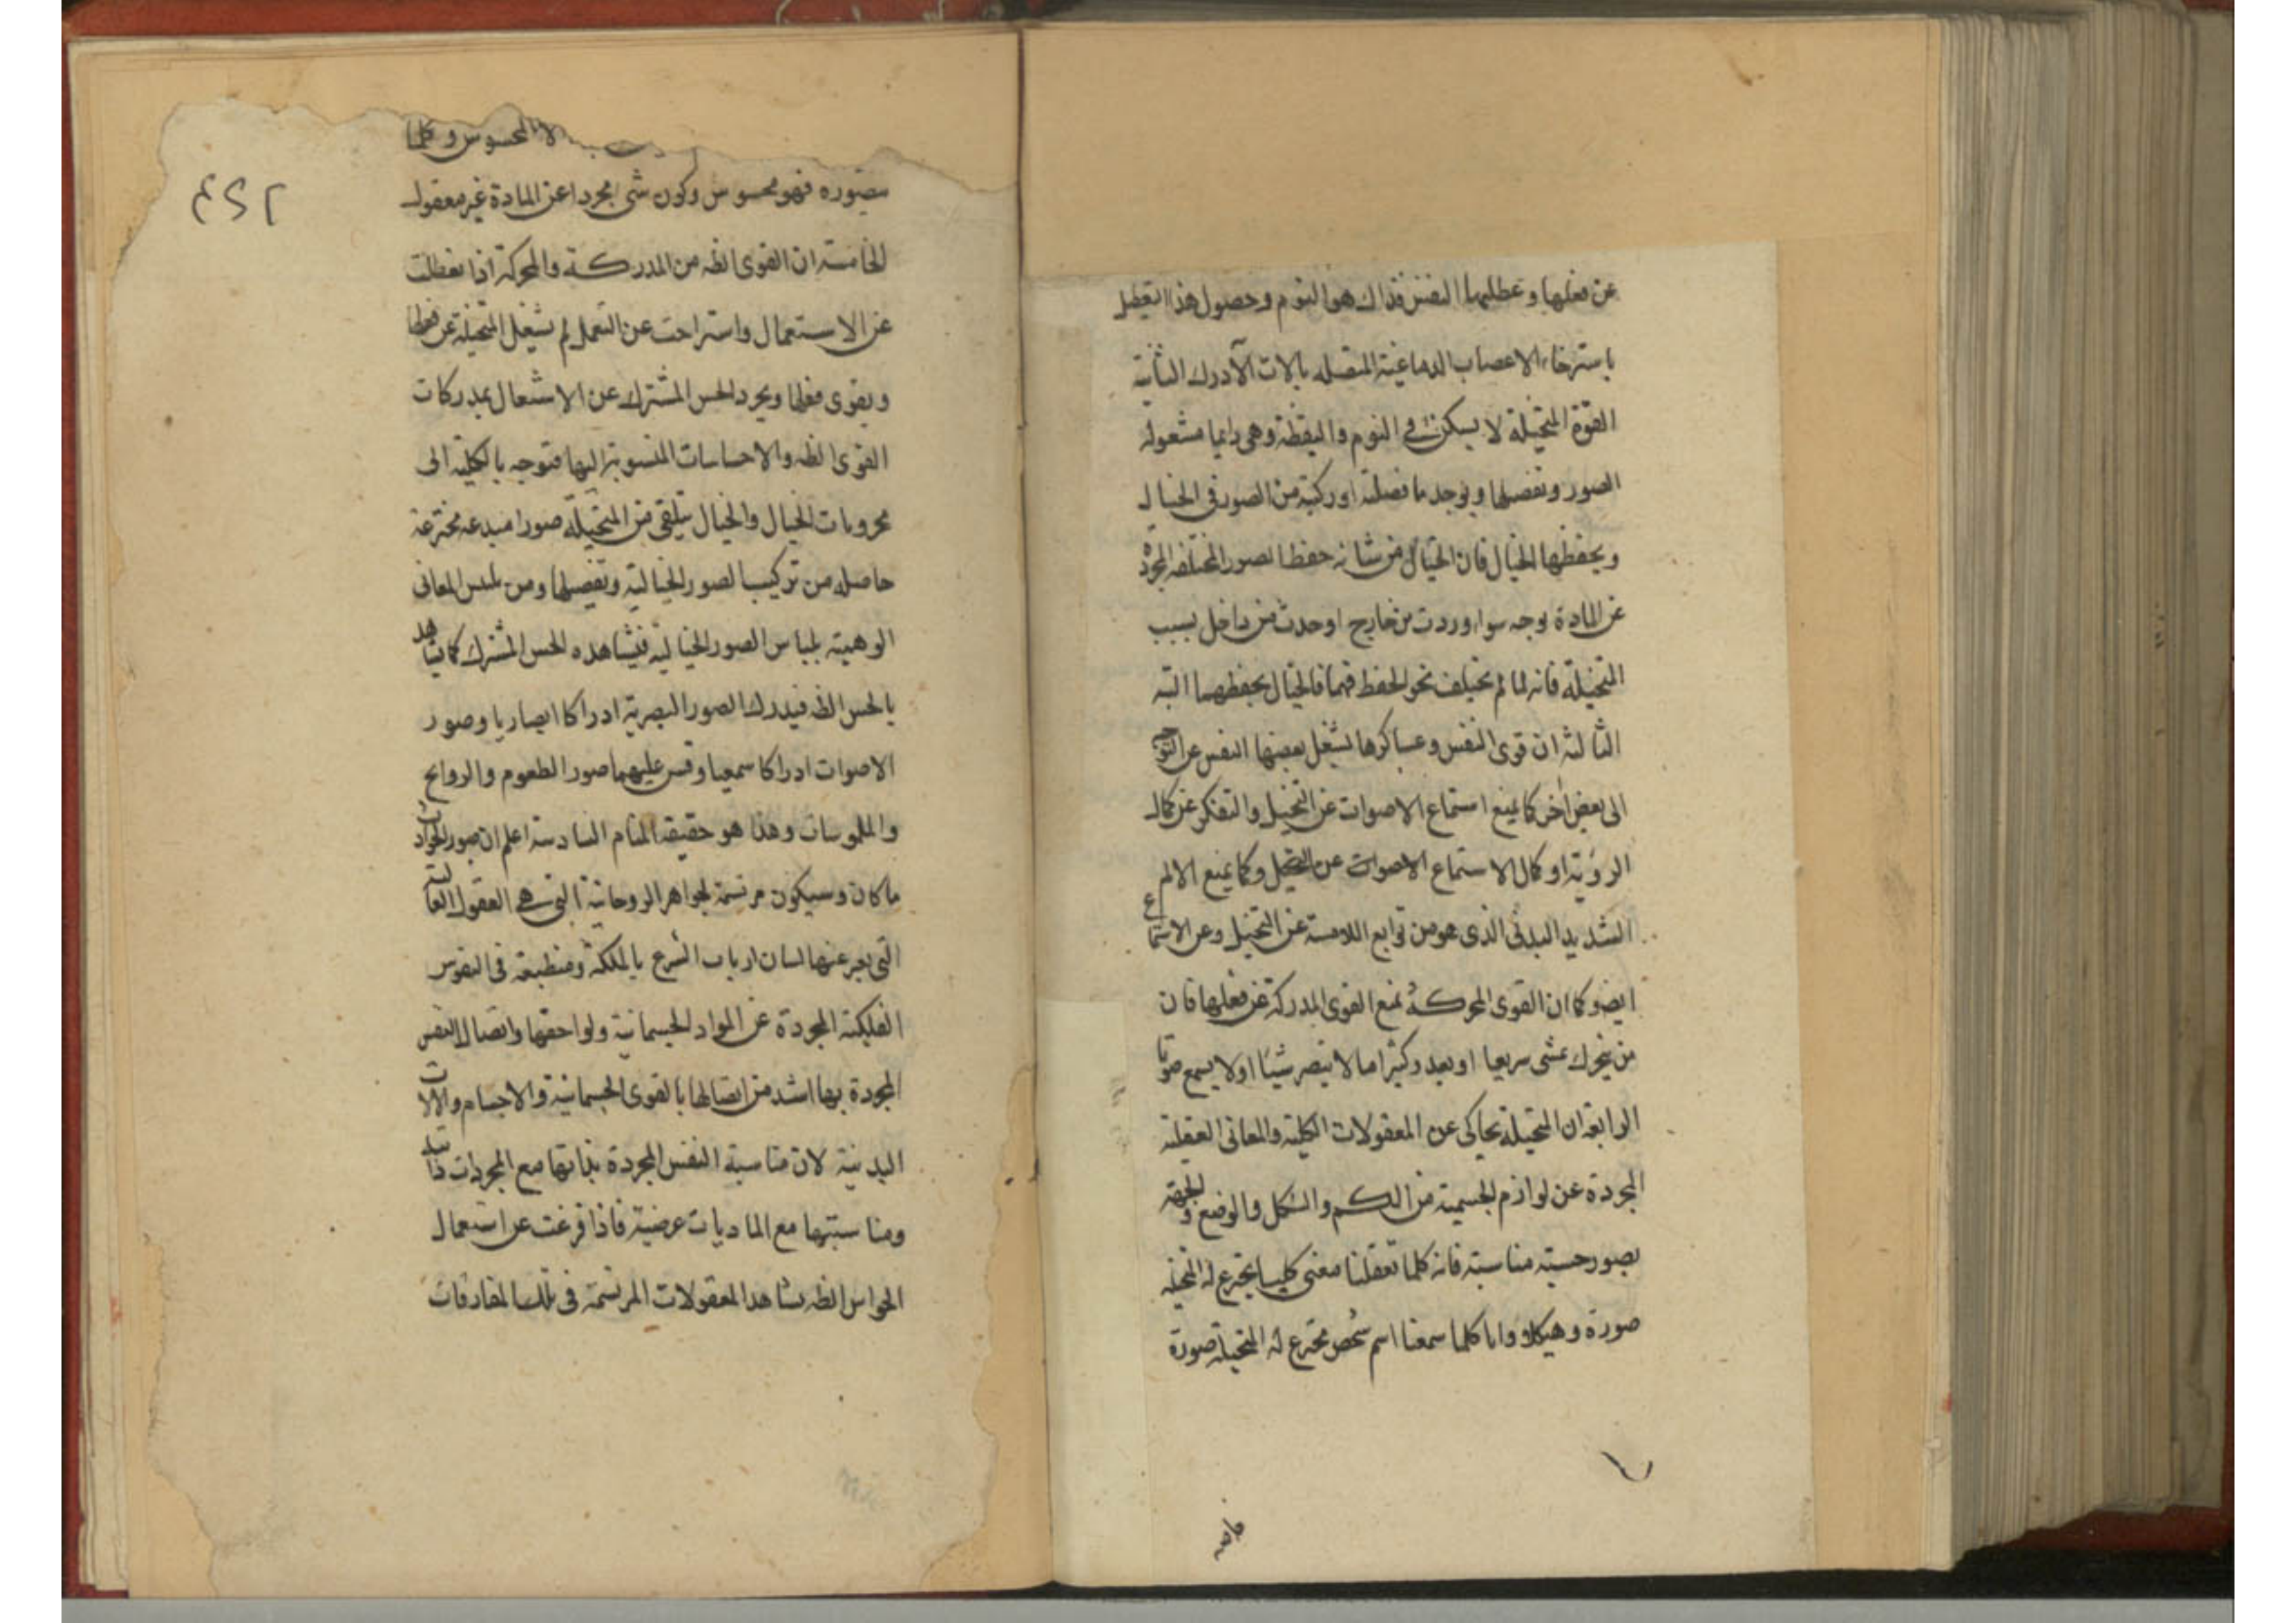 عن فعلها وعطليها النفس فذاك هو النوم وحصول هذا التعطيل
باسترخاء الاعصاب الدماغية المتصله بالات الادراك الثانية
القوة المتخيلة لا يسكن في النوم واليقظة وهي دايما مشغوله
الصور وتفصيلها ويوجد ما فصلته اوركبته من الصور في الخيال
ويحفظها الخيال فان الخيال من شانه حفظ الصور المختلفه المجردة
عن المادة بوجه سواء وردت من خارج او حدثت من داخل بسبب
المتخيلة فانه لما لم يختلف نحو الحفظ فيهما فالخيال يحفظهما البته
الثالثة ان قوى النفس وعساكرها يشغل بعضها النفس عن التوجه
الى بعض اخر كما يمنع استماع الاصوات عن التخيل والتفكر عن كمال
الروية او كمال الاستماع الاصوات عن التخيل وكما يمنع الالم
الشديد البدني الذي هو من توابع اللامسة عن التخيل وعن الاستماع
ايضو كما ان القوى المحركة تمنع القوى المدركة عن فعلها فان
من يتحرك بمشي سريعا او يعدو كثيرا ما لا يبصر شيئا او لا يسمع صوتا
الرابعة ان المتخيلة يحاكى عن المعقولات الكلية والمعاني العقلية
المجردة عن لوازم الجسمية من الكم والشكل والوضع والجهة
بصور حسية مناسبة فانه كلما تعقلنا معنى كليا يخترع له المتخيله
صورة وهيكلا وانا كلما سمعنا اسم شخص يخترع له المتخيلة صورة
لا بالمحسوس وكلما
بصوره فهو محسوس وكون شى مجردا عن المادة غير معقول
الخامسة ان القوى الظه من المدركة والمحركة اذا تعطلت
عن الاستعمال واستراحت عن التعمل لم يشغل المتخيلة عن فعلها
ويقوى فعلها ويجرد الحس المشترك عن الاشتعال بمدركات
القوى الظه والاحساسات المنسوبة اليها فتوجه بالكلية الى
مخزونات الخيال والخيال يتلقى من المتخيلة صورا مبدعه مخترعة
حاصله من تركيب الصور الخيالية وتفصيلها ومن تلبس المعانى
الوهمية بلباس الصور الخيالية فيشاهده الحس المشترك كما يشاهد
بالحس الظه فيدرك الصور البصرية ادراكا ابصاريا وصور
الاصوات ادراكا سمعيا وقس عليهما صور الطعوم والروايح
والملموسات وهذا هو حقيقة المنام السادسة اعلم ان صور الحوادث
ما كان وسيكون مرتسمة لجواهر الروحانية التى هى العقول العالية
التى يعبر عنها لسان ارباب الشرع بالملئكة ومنطبعة فى النفوس
الفلكية المجردة عن المواد الجسمانية ولواحقها واتصال النفس
المجردة بها اشد من اتصالها بالقوى الجسمانية والاجسام والالات
البدنية لان مناسبة النفس المجردة بذاتها مع المجردات ذاتية
ومناسبتها مع الماديات عرضية فاذا فرغت عن استعمال
الحواس الظه يشاهد المعقولات المرتسمة فى تلك المفارقات